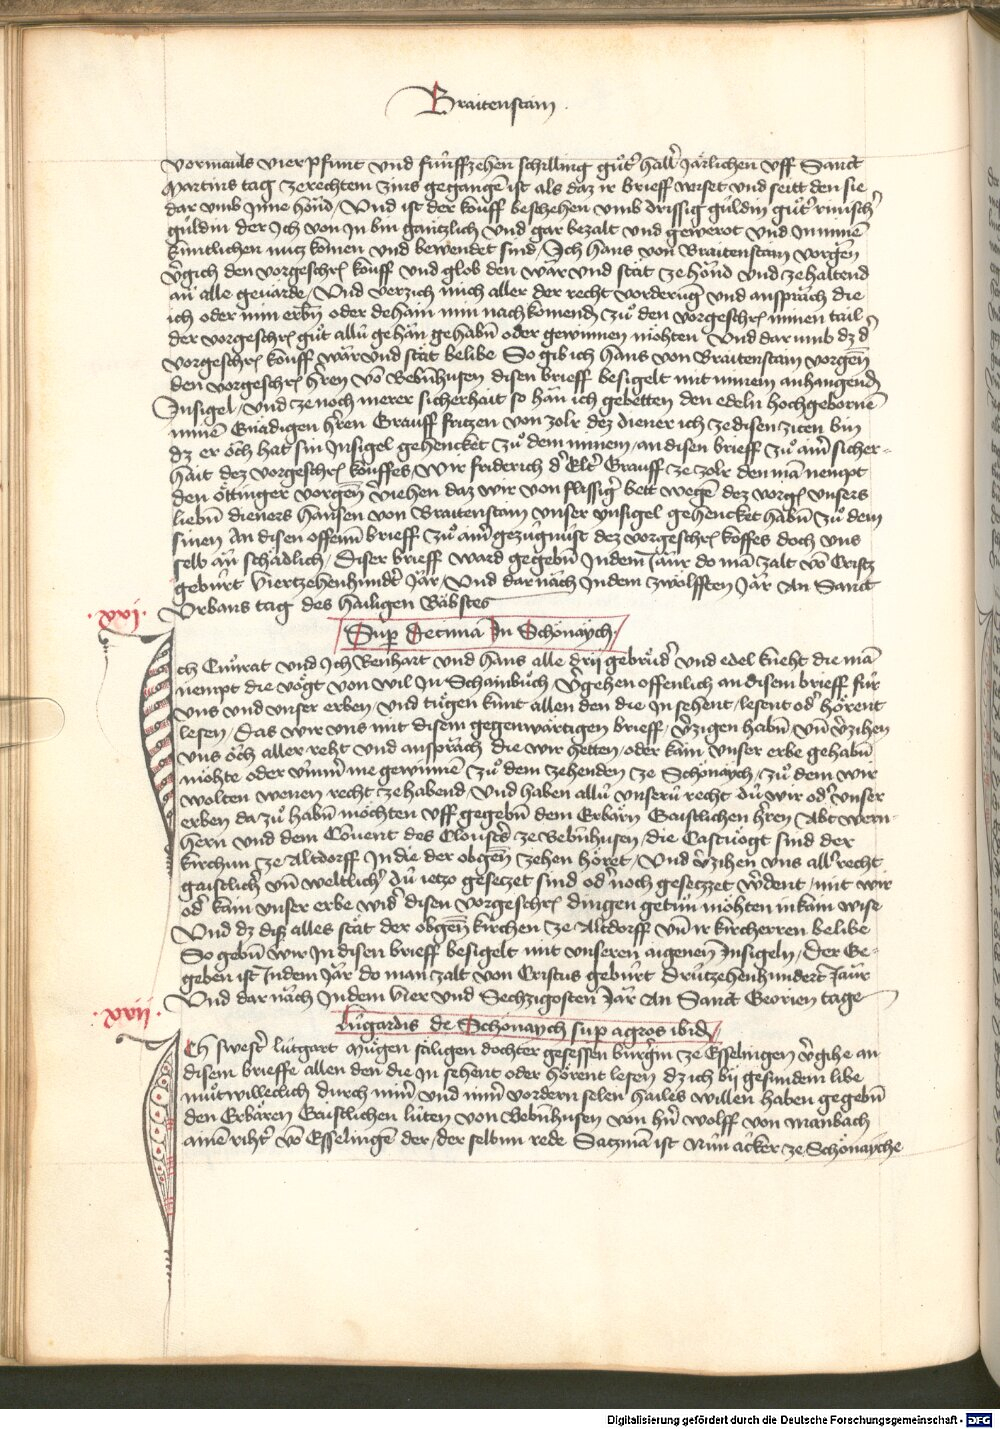 Braitenstain
vormauls vier pfunt und fünffzehen schilling gůt͛ hall͛ järlichen uff Sanct
Martins tag ze rechtem zins gegangē ist als daz ir brieff wiset und seitt den sie
dar umb Inne hönd / Und ist der kouff beschehen umb drissig guldin gůt͛ rinisch͛
guldin der Ich von In bin gäntzlich und gar bezalt und gewerot und In minē
kuntlichen nutz komen und bewendet sind / Ich hans von Braitenstain vorgen̄
v͛gich den vorgeschrꝭ kouff und glob den war und stät ze hönd und ze haltend
än alle geuärde / Und verzich mich aller der recht vorderūg und anspräch die
ich oder min erbn̄ oder dehain min nachkomendꝭ zů den vorgeschrꝭ minen tail
der vorgeschrꝭ gůt allü gehan gehabn̄ oder gewinnen möhten Und dar umb dz d͛
vorgeschrꝭ kouff wär und stät belibe So gib ich hans von Braitenstain vorgen̄
den vorgeschrꝭ h͛ren vō Bebn̄husen disen brieff besigelt mit minem anhangendꝭ
Insigel / und ze noch merer sicherhait so hän ich gebetten den edeln hochgebornē
minē Gnädigen h͛ren Grauff fritzen von zolr dez diener ich ze disen ziten bin
dz er öch hat sin Insigel gehencket zů dem minem / an disen brieff zů ain͛ sicher-
hait dez vorgeschrꝭ kouffes / Wir friderich d͛ Elt͛ Grauff ze zolr den mā nempt
den öttinger vorgen̄ v͛iehen daz wir von flissig͛ bett wegē dez vorgꝭ unsers
liebn̄ dieners hansen von Braitenstain unser ynsigel gehencket habn̄ zů dem
sinen An disen offenn̄ brieff zů ain͛ gezügnust dez vorgeschrꝭ koffes doch uns
selb än schädlich / Diser brieff ward gegebn̄ In dem Jaur do mā zalt vō Cristz
geburt viertzehenhundt͛ Jär / Und dar näch In dem zwölfften Jär An Sanct
Urbans tag des hailigen Bäbstes
.xxi.
Suꝑ Decimā In Schönaÿch /
Ich Cunrat und Ich Renhart und hans alle drij gebrůd͛ und edel kneht die mā
nempt die vögt von wil In Schainbůch / v͛gehen offenlich an disem brieff für
uns und unser erben / und tůgen kunt allen den die In sehent / lesent od͛ hörent
lesen / Das wir uns mit disem gegenwärtigen brieff / v͛zigen habn̄ / un̄ v͛zihen
uns öch aller reht und anspräch die wir hetten / oder kain unser erbe gehabn̄
möhte oder um͛ me gewinnē zů dem zehenden ze Schönaÿch / zů dem wir
wolten wenen recht ze habend / und haben allü unserü recht dü wir od͛ unser
erben da zů habn̄ möchten uff gegebn̄ dem Erbärn Gaistlichen h͛ren Abt wern-
hern und dem Cōuent des Closters ze Bebn̄husen / die Castuögt sind der
kirchun ze Altdorff In die der obgen̄ zehen höret / Und v͛zihen uns all͛ recht
gaistlich͛ un̄ weltlich͛ dü ietzo gesetzet sind od͛ noch gesetzzet w͛dent / mit wir
od͛ kain unser erbe wid͛ disen vorgeschrꝭ dingen getůn möhten in kain wise
Und dz diß alles stät der obgen̄ kirchen ze Altdorff un̄ ir kircherren belibe
So gebn̄ wir In disen brieff besigelt mit unseren aigenen Insigeln / Der Ge-
geben ist In dem Jär do man zalt von Cristus geburt Drützehenhundert Jaur
Und dar näch In dem vier und Sechzigosten Jär An Sanct Georien tage
.xxii.
Lu̍gardis de Schönaÿch suꝑ agros ibidꝭ
Ich swest͛ lutgart Mügen säligen dochter gesessen burg͛in ze Esselingen v͛gihe an
disem brieffe allen den die In sehent oder hörent lesen dz ich bij gesundem libe
můtwilleclich durch min͛ und min͛ vordern selen hailes willen haben gegebn̄
den Erbären Gaistlichen lüten von Bebn̄husen von hn͛ wolff von manbach
ainē riht͛ vō Esselingē der / der selbun rede Satzmā ist Nun äcker ze Schönaÿche
Digitalisierung gefördert durch die Deutsche Forschungsgemeinschaft - DFG